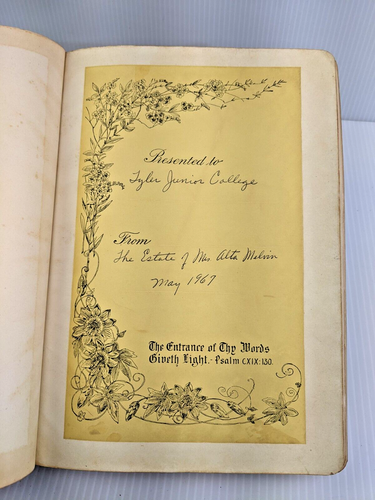 Presented to
Tyler Junior College
From
The Estate of Mrs Alta Melvin
May 1967
The Entrance of Thy Words
Giveth Light.-Psalm CXIX:130.